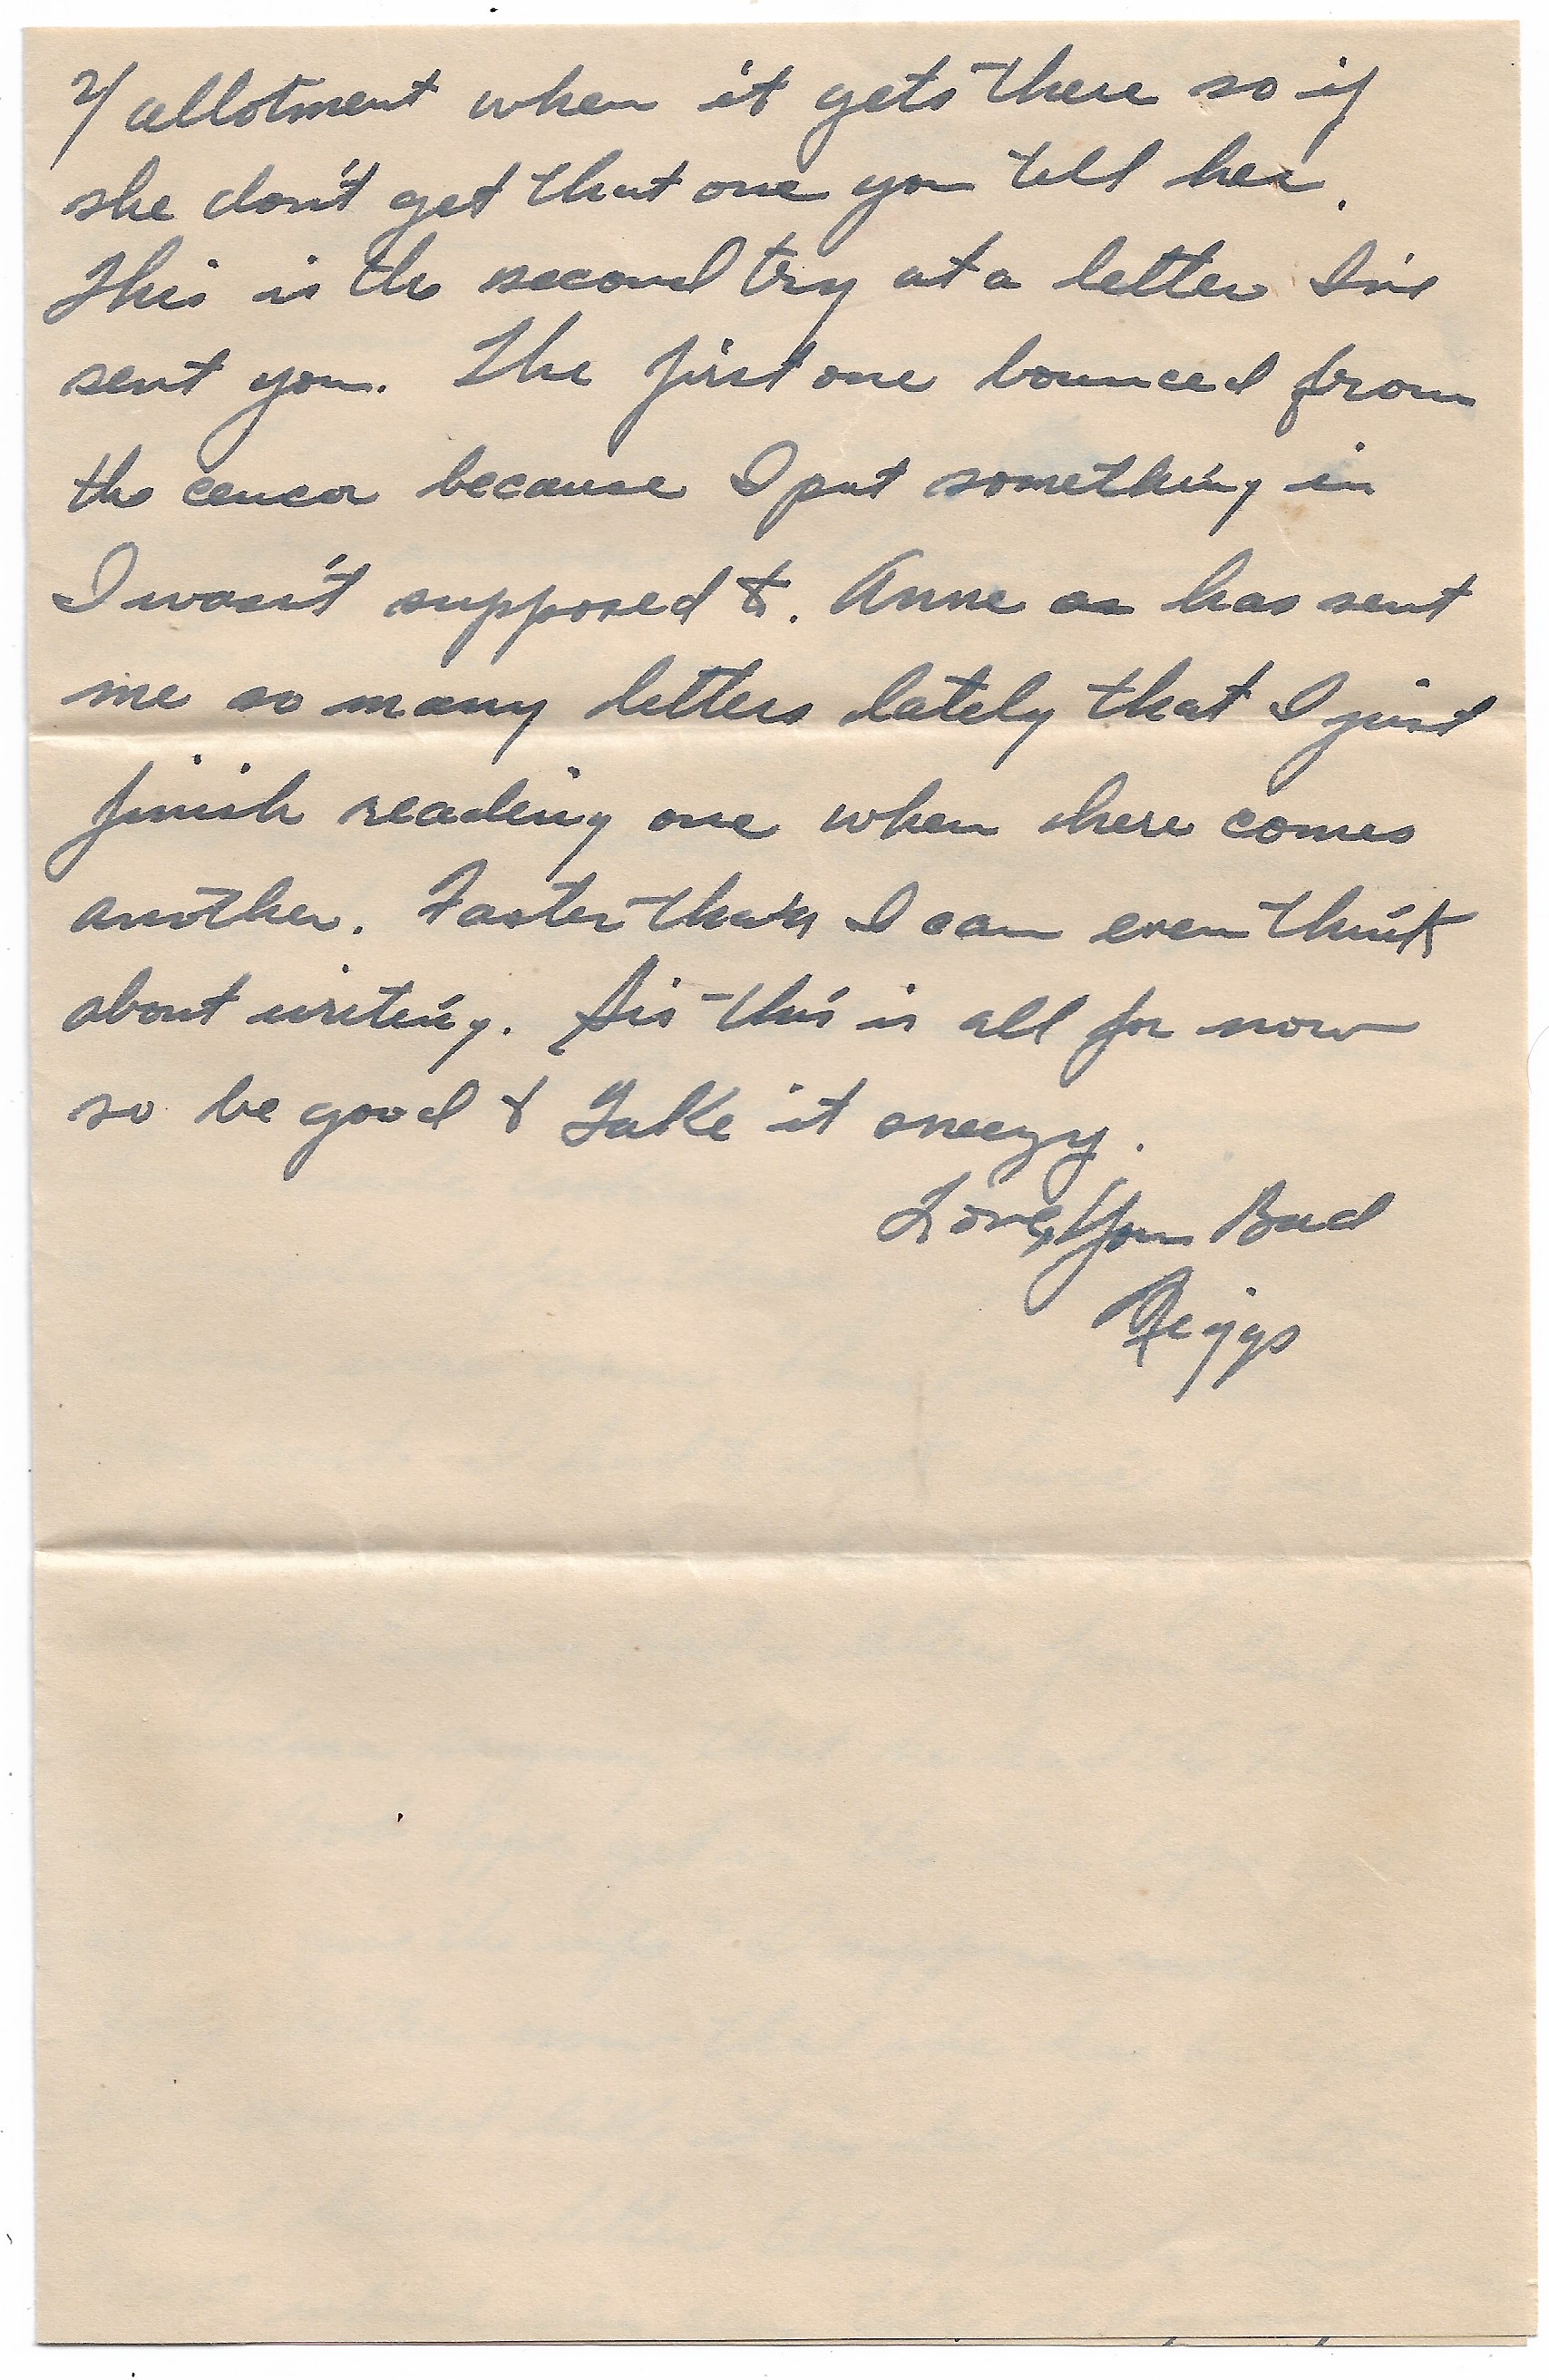 2/ allotment when it gets there so if
she don't get that one you tell her.
This is the second try at a letter I've
sent you. The first one bounced from
the cencor because I put something in
I wasn't supposed to. Anne as has sent
me so many letters lately that I just
finish reading one when there comes
another. Faster than I can even think
about writing. Sis this is all for now
so be good & Take it sneezy.
Love, Your Bud
Riggs